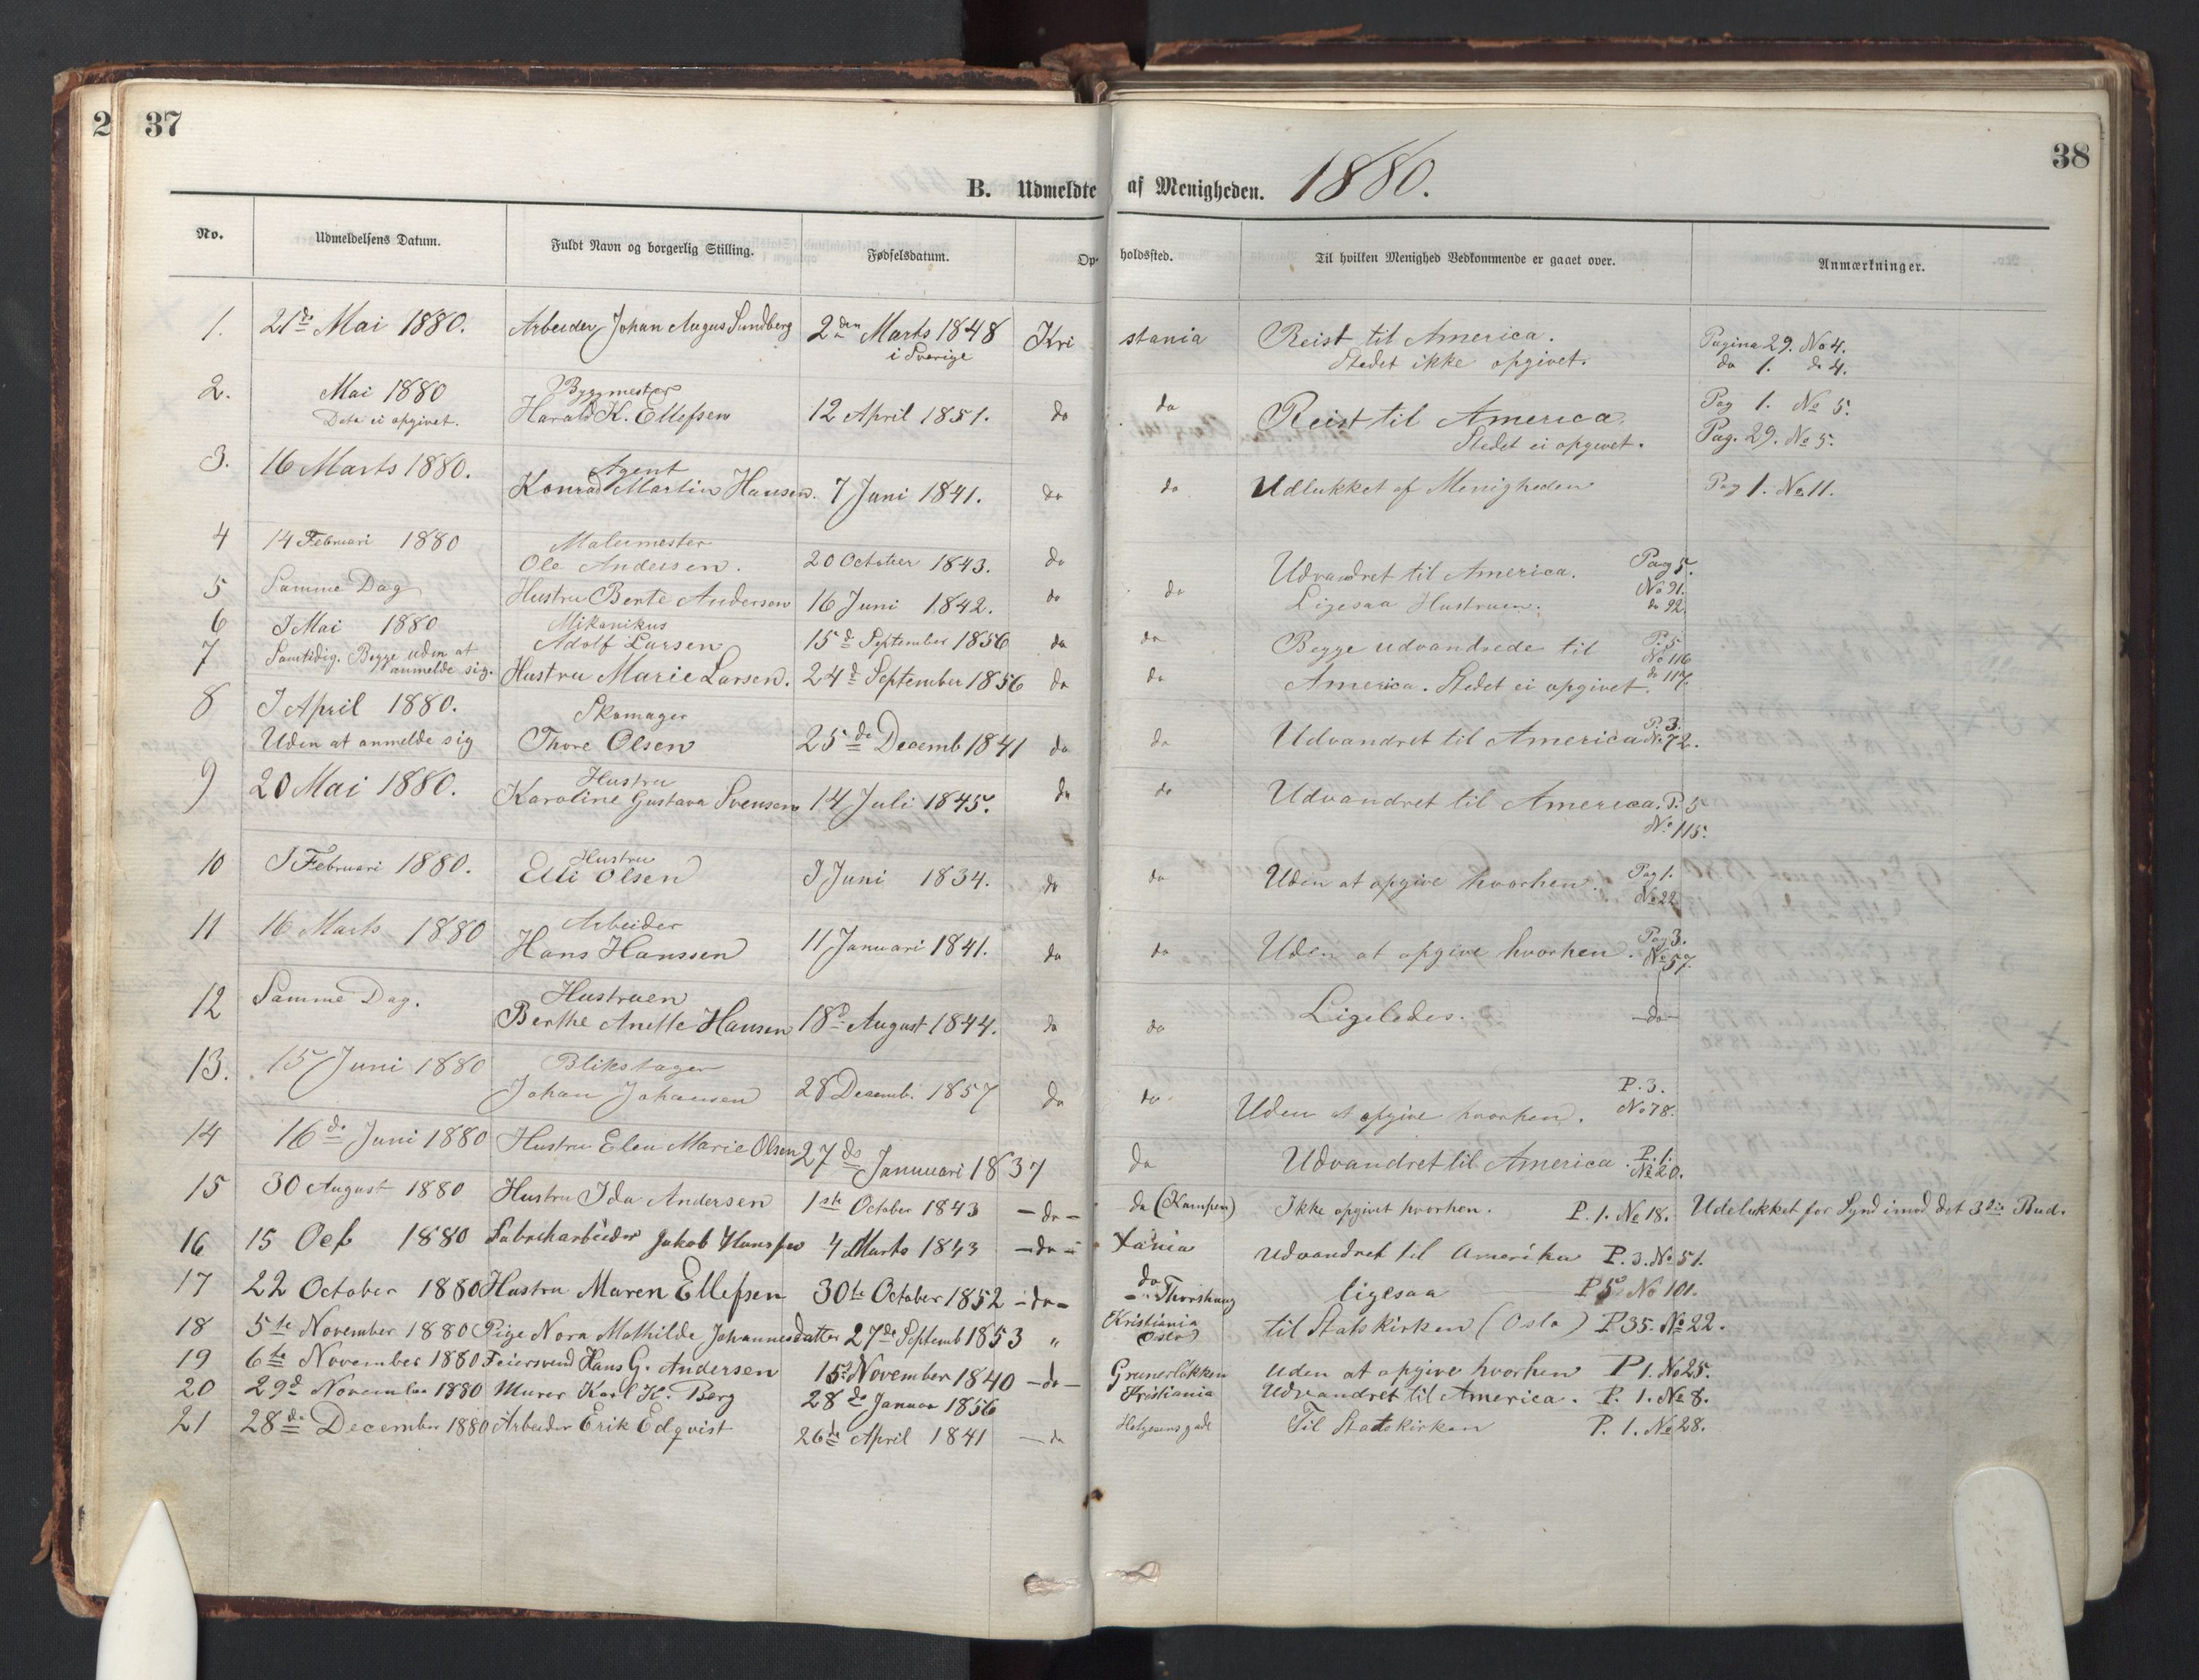 2 37
38
B. Udmeldte af Menigheden. 1880.
No. Udmeldelsens Datum. Fuldt Navn og borgerlig Stilling. Fødselsdatum. Opholdssted. Til hvilken Menighed Vedkommende er gaaet over. Anmærkninger.
1. 21de Mai 1880. Arbeider Johan Augus Sundberg 2den Marts 1848 Kristania Reist til America. Pagina 29. No 4.
i Sverige Stedet ikke opgivet. do 1. do 4.
2. Mai 1880 Byggmester Pag 1. No 5.
Data ei opgivet. Harald K. Ellefsen 12 April 1851. do do Reist til America.
Stedet ei opgivet. Pag. 29. No 5.
3. 16 Marts 1880. Agent
Konrad Martin Hansen. 7 Juni 1841. do do Udlukket af Menigheden Pag 1. No 11.
4 14 Februari 1880 Malermester
Ole Andersen. 20 October 1843. do Udvandret til America. Pag 5.
No 91.
5 Samme Dag Hustru Berte Andersen 16 Juni 1842. do do Ligesaa Hustruen. do 92.
6 I Mai 1880 Mikanikus
Adolf Larsen 15d September 1856 do do Begge udvandrede til P. 5
No 116
7 Samtidig. Begge uden at
anmelde sig. Hustru Marie Larsen. 24d September 1856 do do America. Stedet ei opgivet. do 117.
8 I April 1880. Skomager
Uden at anmelde sig Thore Olsen 25de Decemb 1841 do do Udvandret til America P. 3.
No 72.
9 20 Mai 1880. Hustru
Karoline Gustava Svensen 14 Juli 1845. do do Udvandret til America. P. 5
No 115.
10 I Februari 1880. Hustru
Elli Olsen I Juni 1834. do do Uden at opgive hvorhen. Pag 1.
No 22
11 16 Marts 1880 Arbeider
Hans Hanssen 11 Januari 1841. do do Uden at opgive hvorhen. Pag 3.
No 57.
12 Samme Dag. Hustruen
Berthe Anette Hansen 18d August 1844. do do Ligeledes. do
13. 15 Juni 1880 Blikslager
Johan Johansen 28 Decemb. 1857 do do Uden at opgive hvorhen. P. 3.
No 78.
14 16de Juni 1880 Hustru Elen Marie Olsen 27de Januuari 1837 do Udvandret til America. P. 1.
No 20.
15 30 August 1880 Hustru Ida Andersen 1ste October 1843 – do – do (Kampen) Ikke opgivet hvorhen. P. 1. No 18. Udelukket for Synd imod det 3die Bud.
16 15 1880 Fabrikarbeider Jakob 4 Marts 1843 – do – Xania Udvandret til Amerika P. 3. No 51.
17 22 October 1880 Hustru Maren Ellefsen 30te October 1852 – do – do
Thorshaug ligesaa P 5 No 101.
18 5te November 1880 Pige Nora Mathilde Johannesdatter 27de Septemb 1853 " Kristiania
Oslo) til Statskirken (Oslo) P 35. No 22.
19 6te November 1880 Feiersvend Hans G. Andersen 15d November 1840 – do – Grunerløkken Uden at opgive hvorhen P 1. No 25.
20 29d November 1880 Murer Karl K. Berg 28de Januar 1856 Kristiania Udvandret til America. P. 1. No 8.
21 28de December 1880 Arbeider Erik Edqvist 26de April 1841 – do Helgesensgade Til Statskirken P. 1. No 28.